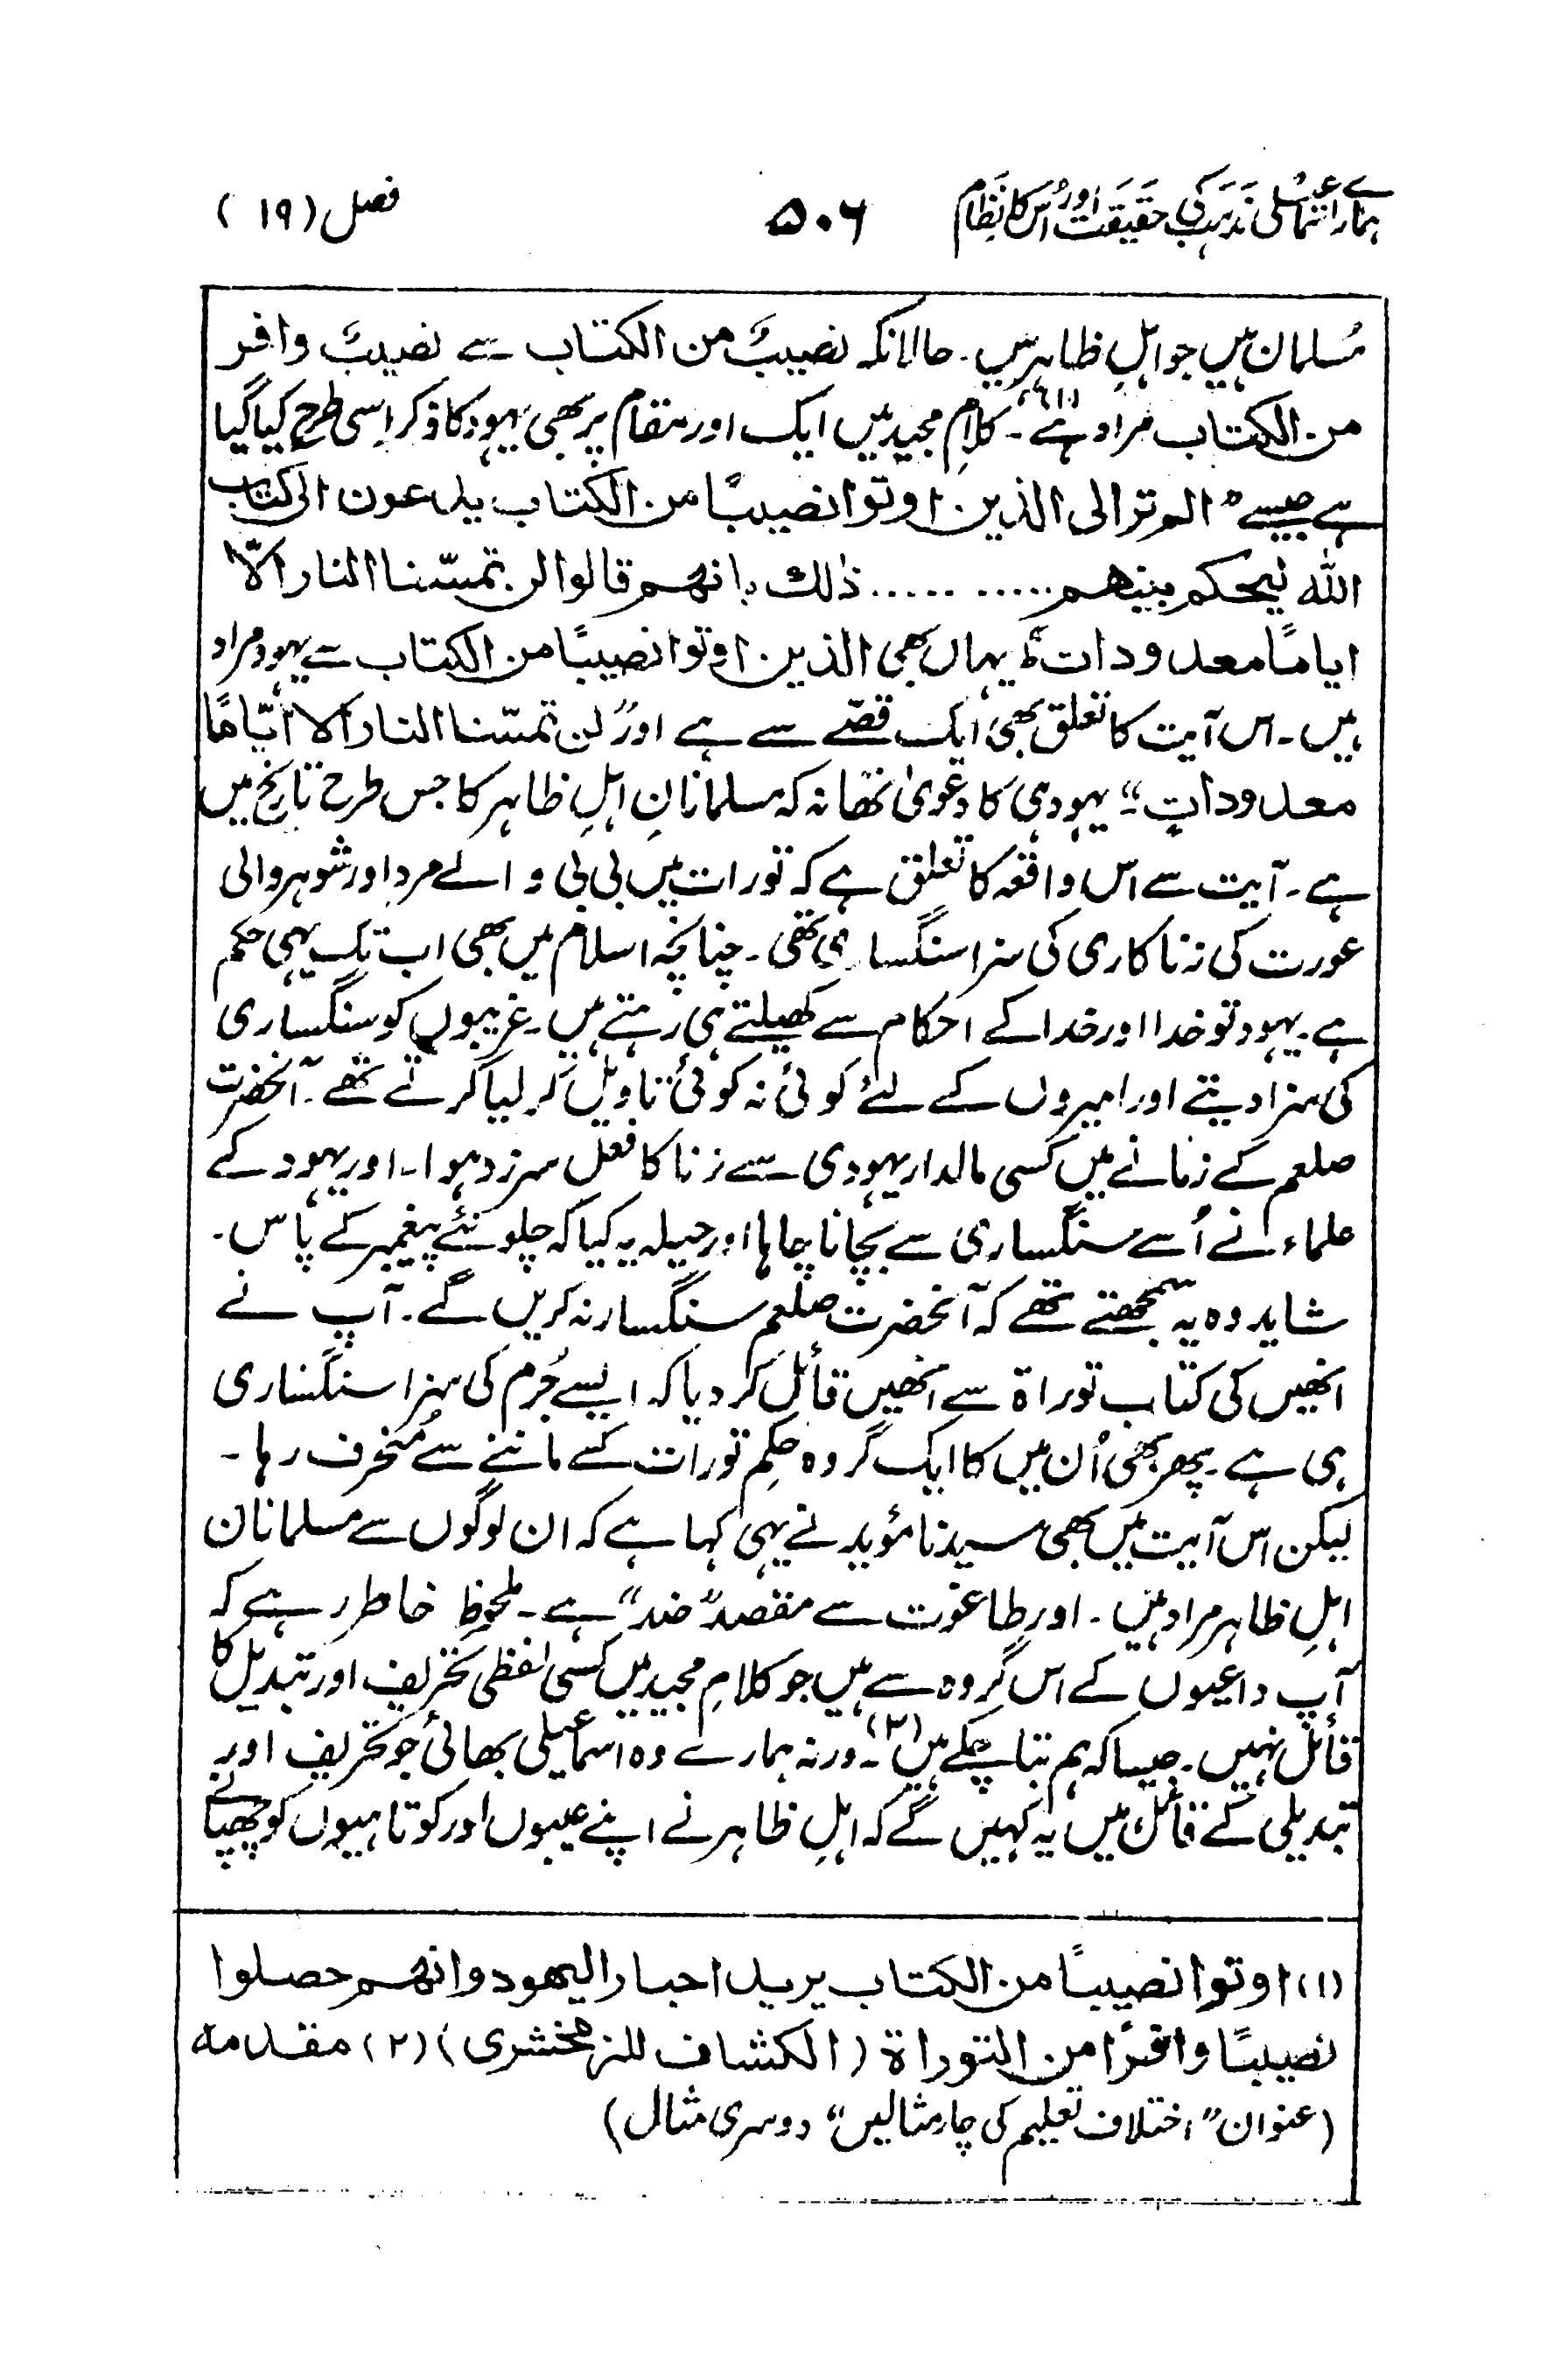 ہمارے اسمٰعیلی مذہب کی حقیقت اور اس کا نظام ۵۰۶ فصل (۱۹)
مُسلمان ہیں جو اہلِ ظاہر ہیں۔ حالانکہ نصیبٌ من الکتاب سے نصیبٌ وافر
من الکتاب مراد ہے(۱)۔ کلامِ مجید میں ایک اور مقام پر بھی یہود کا ذکر اِسی طرح کیا گیا
ہے جیسے "الم تر الی الذین اوتوا نصیبًا من الکتاب یدعون الی کتاب
اللہ لیحکم بینھم ........... ذٰلک بانھم قالوا لن تمسّنا النار الّا
ایامًا معدودات"؛ یہاں بھی الذین اوتوا نصیبًا من الکتاب سے یہود مراد
ہیں۔ اس آیت کا تعلق بھی ایک قصّے سے ہے اور "لن تمسّنا النار الا ایّامًا
معدوداتٍ"۔ یہود ہی کا دعویٰ تھا نہ کہ مسلمانانِ اہلِ ظاہر کا جس طرح تاریخ میں
ہے۔ آیت سے اس واقعہ کا تعلق ہے کہ تورات میں بی بی والے مرد اور شوہر والی
عورت کی زناکاری کی سزا سنگساری تھی۔ چنانچہ اسلام میں بھی اب تک یہی حکم
ہے۔ یہود تو خدا اور خدا کے احکام سے کھیلتے ہی رہتے ہیں۔ غریبوں کو سنگساری
کی سزا دیتے اور امیروں کے لئے کوئی نہ کوئی تاویل کر لیا کرتے تھے۔ آنحضرت
صلعم کے زمانے میں کسی مالدار یہودی سے زنا کا فعل سرزد ہوا۔ اور یہود کے
علماء نے اُسے سنگساری سے بچانا چاہا اور حیلہ یہ کیا کہ چلو نئے پیغمبر کے پاس۔
شاید وہ یہ سمجھتے تھے کہ آنحضرت صلعم سنگسار نہ کریں گے۔ آپ نے
انھیں کی کتاب توراۃ سے انھیں قائل کر دیا کہ ایسے جُرم کی سزا سنگساری
ہی ہے۔ پھر بھی اُن میں کا ایک گروہ حکمِ تورات کے ماننے سے مُنحرف رہا۔
لیکن اس آیت میں بھی سیدنا مؤید نے یہی کہا ہے کہ ان لوگوں سے مسلمانان
اہلِ ظاہر مراد ہیں۔ اور طاغوت سے مقصد "ضد" ہے۔ ملحوظ خاطر رہے کہ
آپ داعیوں کے اس گروہ سے ہیں جو کلامِ مجید میں کسی لفظی تحریف اور تبدیل کا
قائل نہیں۔ جیسا کہ ہم بتا چکے ہیں(۲)۔ ورنہ ہمارے وہ اسماعیلی بھائی جو تحریف اور
تبدیلی کے قائل ہیں یہ کہیں گے کہ اہلِ ظاہر نے اپنے عیبوں اور کوتاہیوں کو چھپانے
(۱) اوتوا نصیبًا من الکتاب یرید احبار الیھود وانھم حصلوا
نصیبًا وافرًا من التوراۃ (الکشاف للزمخشری) (۲) مقدمہ
(عنوان "اختلاف تعلیم کی چار مثالیں" دوسری مثال)